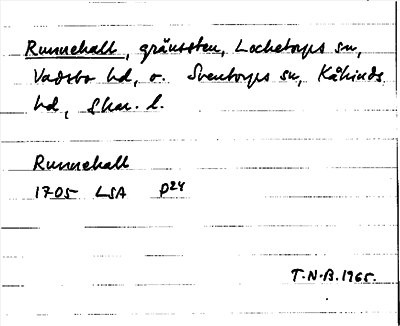 Runnehall, gränssten, Locketorps sn,
Vadsbo hd, o. Sventorps sn, Kåkinds
hd, Skar. l.
Runnehall
1705 LSA P24
T.N.B. 1965.